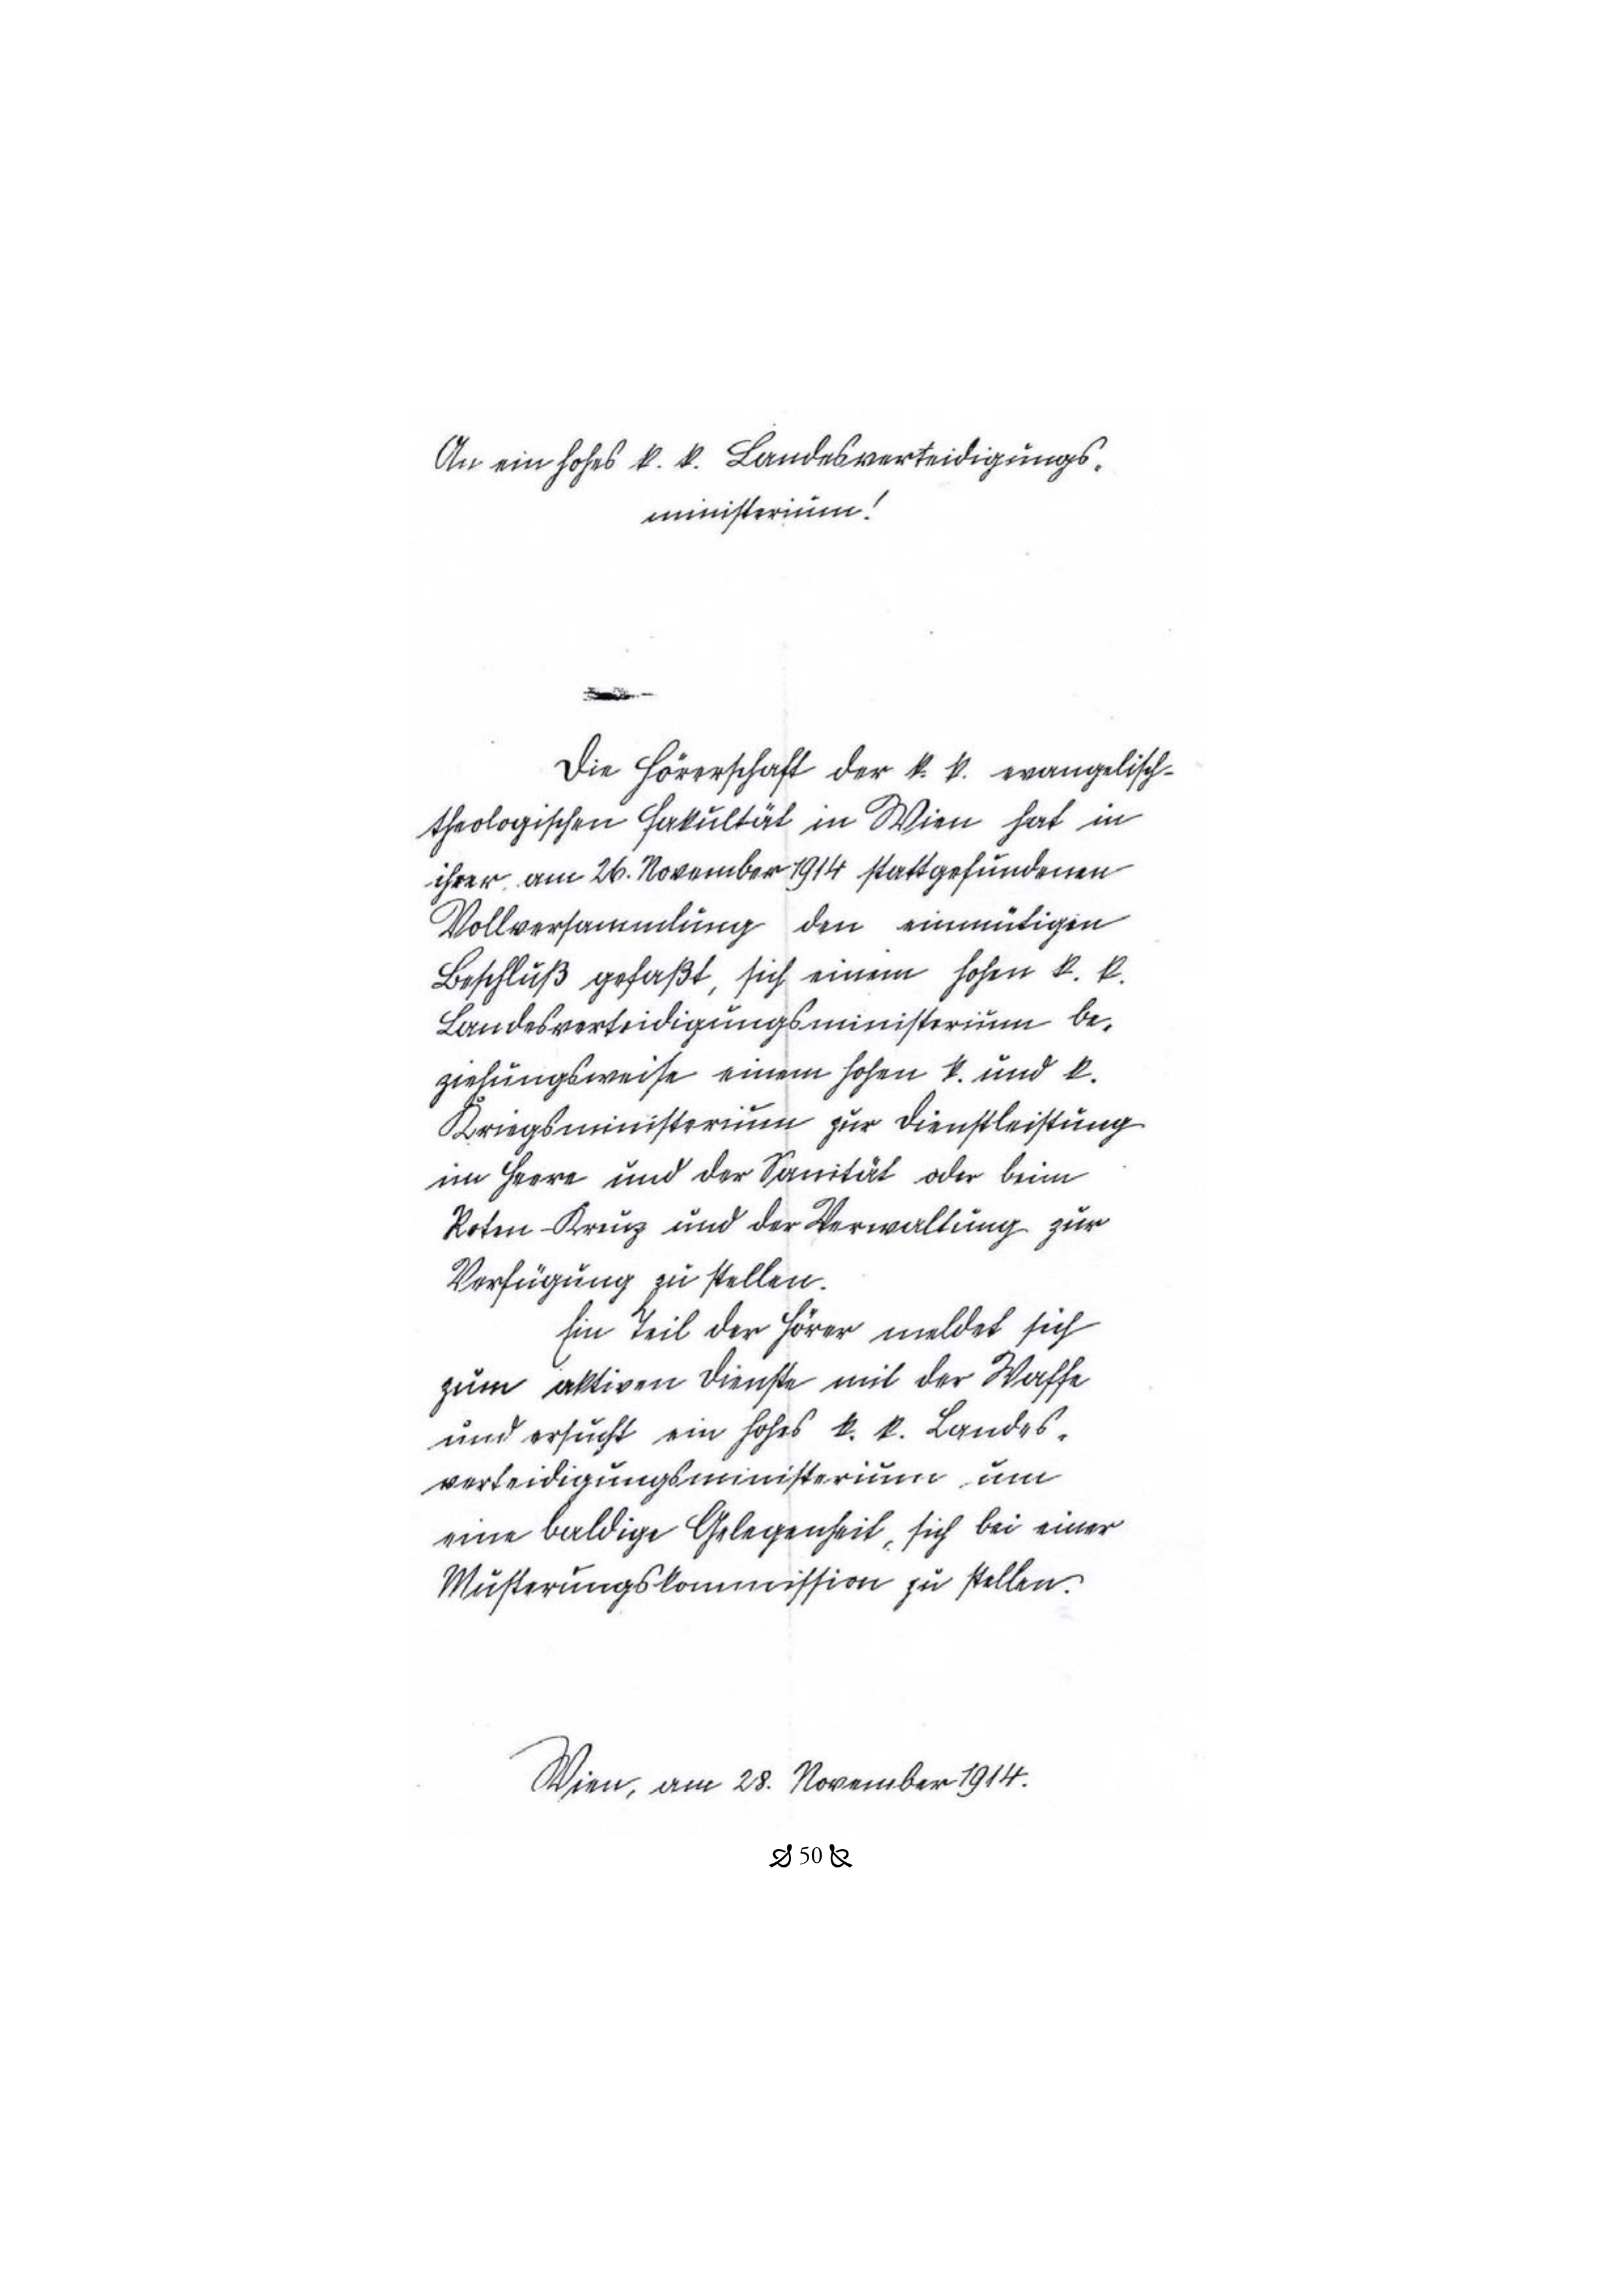 An ein hohes k. k. Landesverteidigungs-
ministerium!
Die Hörerschaft der k. k. evangelisch-
theologischen Fakultät in Wien hat in
ihrer am 26. November 1914 stattgefundenen
Vollversammlung den einmütigen
Beschluß gefaßt, sich einem hohen k. k.
Landesverteidigungsministerium be-
ziehungsweise einem hohen k. und k.
Kriegsministerium zur Dienstleistung
im Heere und der Sanität oder beim
Roten Kreuz und der Verwaltung zur
Verfügung zu stellen.
Ein Teil der Hörer meldet sich
zum aktiven Dienste mit der Waffe
und ersucht ein hohes k. k. Landes-
verteidigungsministerium um
eine baldige Gelegenheit, sich bei einer
Musterungskommission zu stellen.
Wien, am 28. November 1914.
50